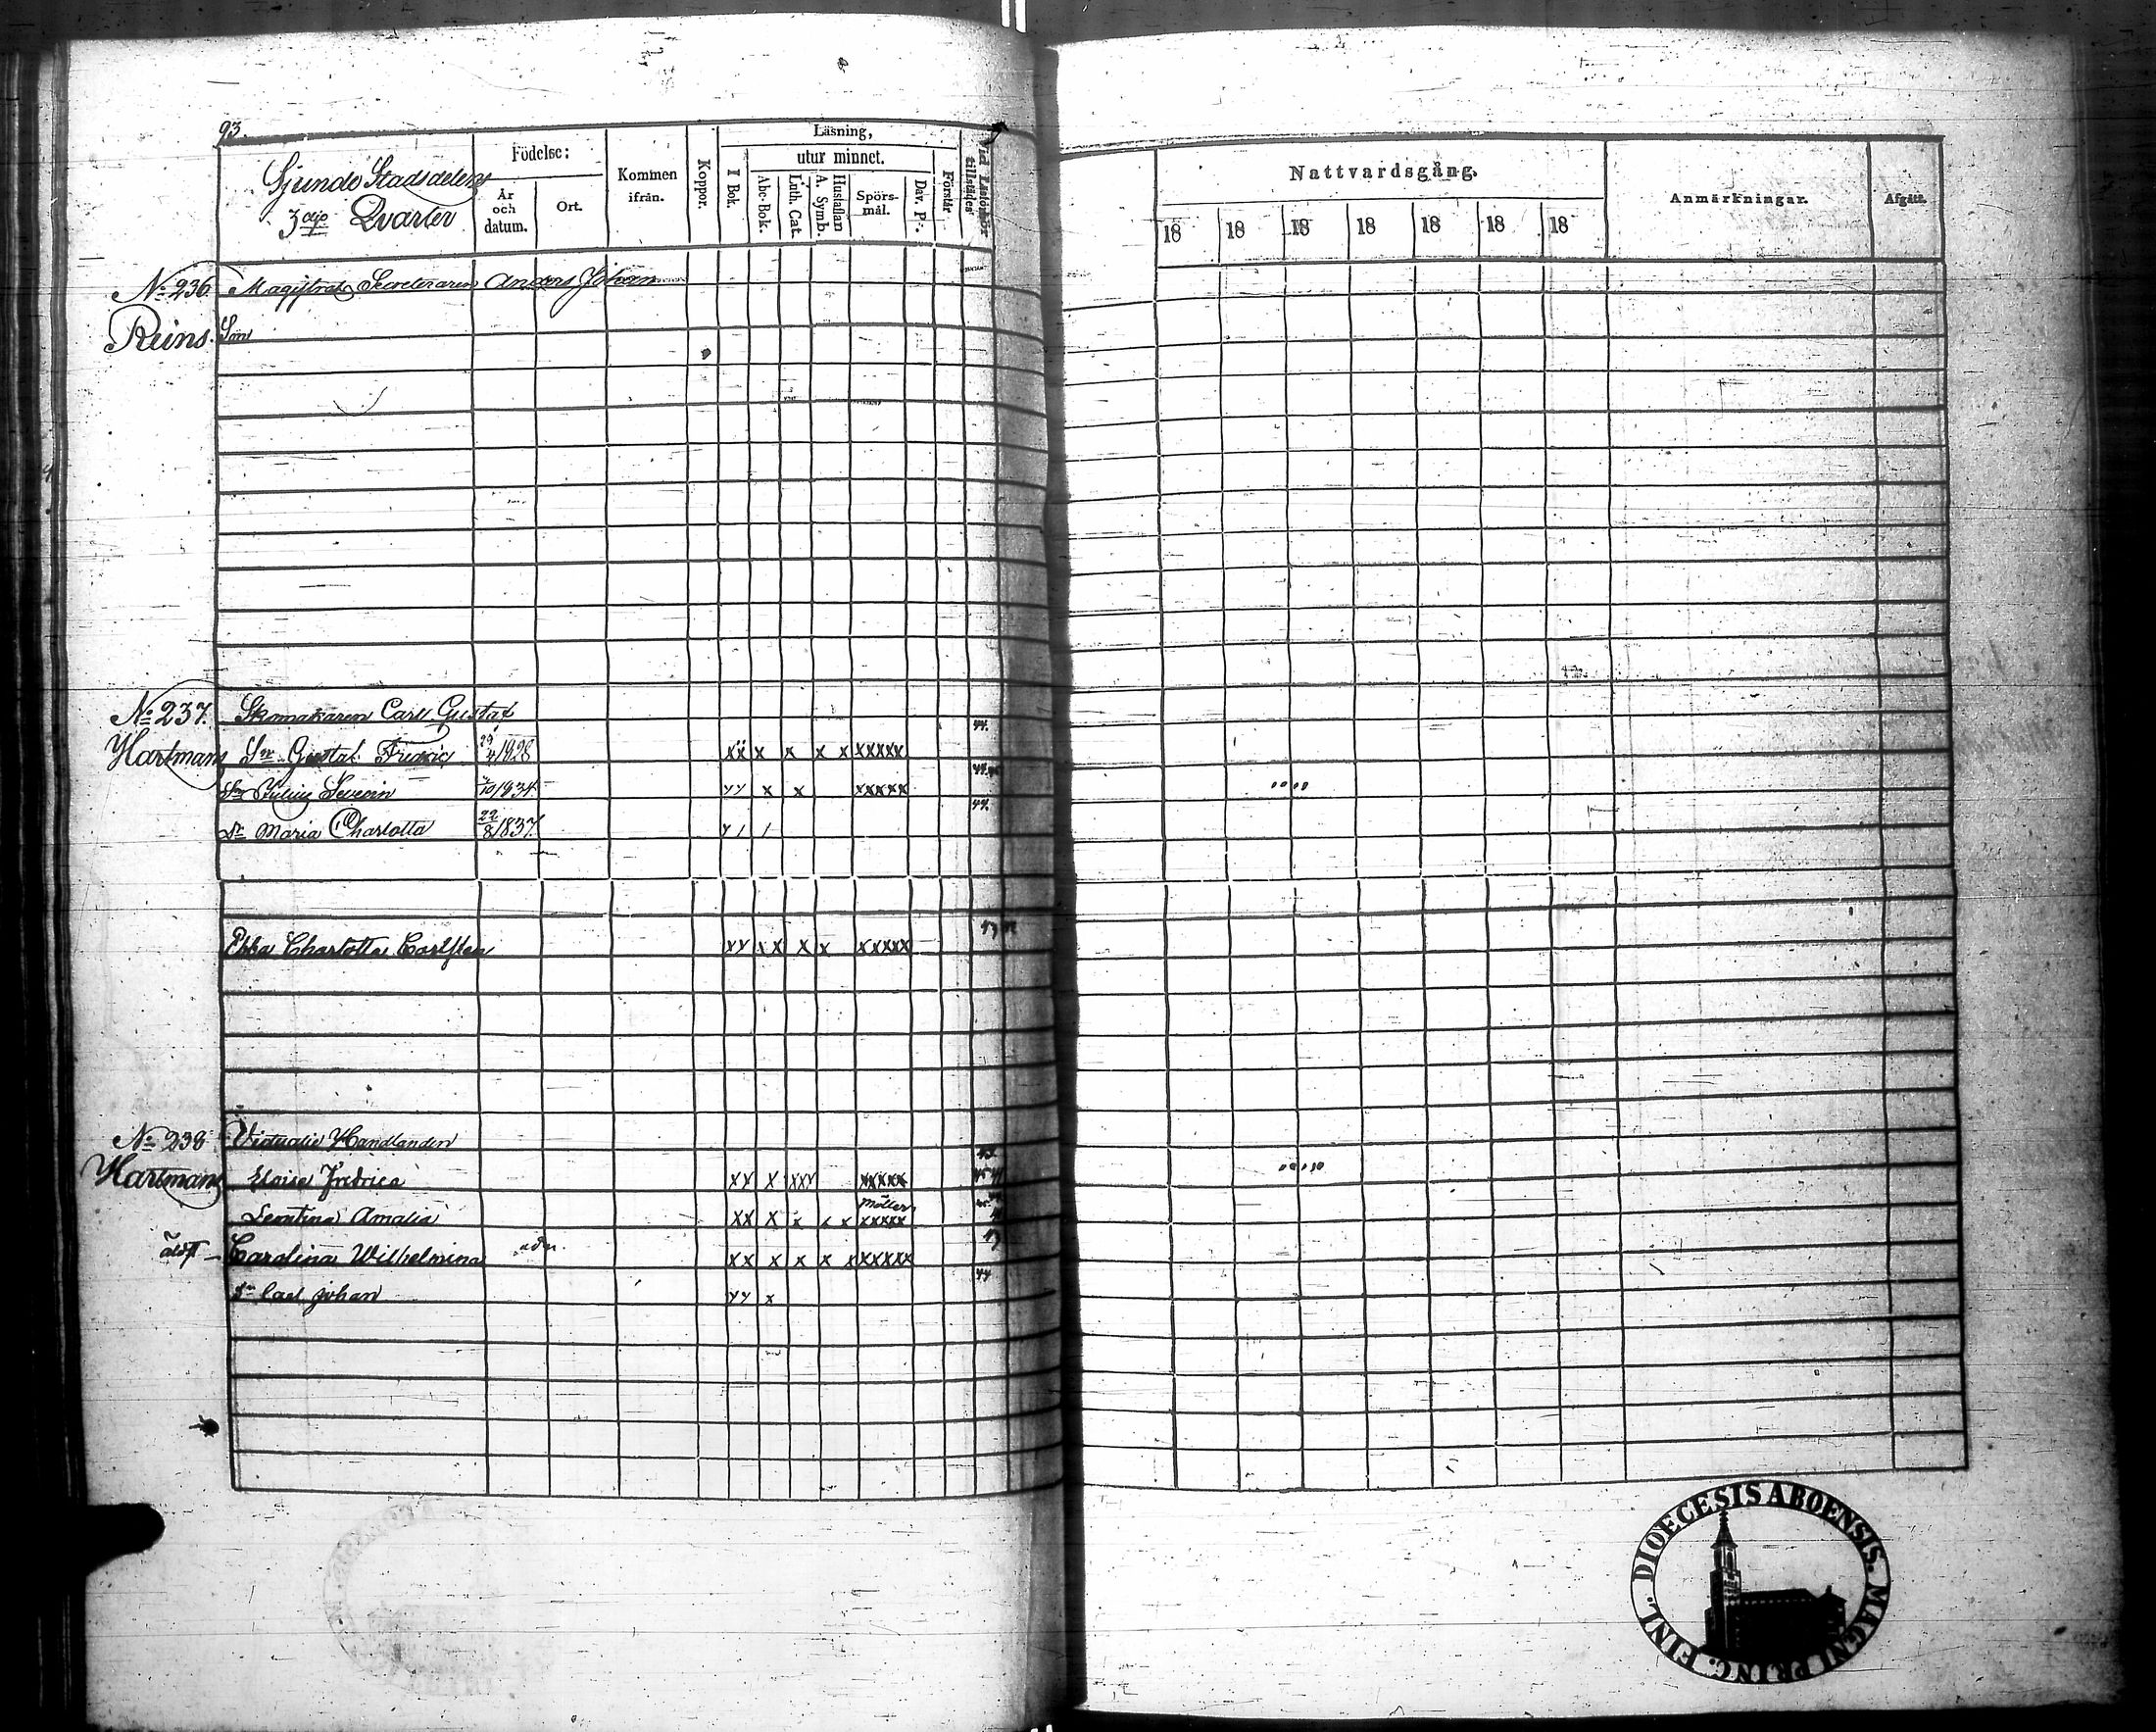 93.
Sjunde Stadsdelens
3dje Qvarter
Födelse:
År och datum.
Ort.
Kommen ifrån.
Koppor.
Läsning,
I Bok.
utur minnet.
Abc-Bok.
Luth. Cat.
A. Symb.
Hustaflan
Spörs-mål.
Dav. Ps.
Förstår
Vid Läsförhör tillstädes
Nattvardsgång.
18 18 18 18 18 18 18
Anmärkningar.
Afgått.
No 236. Magistrats Secreteraren Anders Johan
Reins. Son
No 237. Skomakaren Carl Gustaf
44.
Hartmans Sn Gustaf Fredric 29/4 1828 xx x x x x xxxxx
44.
Sn Julius Severin /10 1834 yy x x xxxxx
44.
Dr Maria Charlotta 22/8 1837.
Ebba Charlotta Carlsten xxxxx
No 238 Victualie Handlanden
43.
Hartmans Lovisa Fredrica xx x xxx xxxxx
Möller
Leontina Amalia xx x x x x xxxxx
äldst Carolina Wilhelmina xx x x x xxxxxx
44
Sn Carl Johan yy x
DIOECESIS ABOENSIS. MAGNI PRINC. FINL.